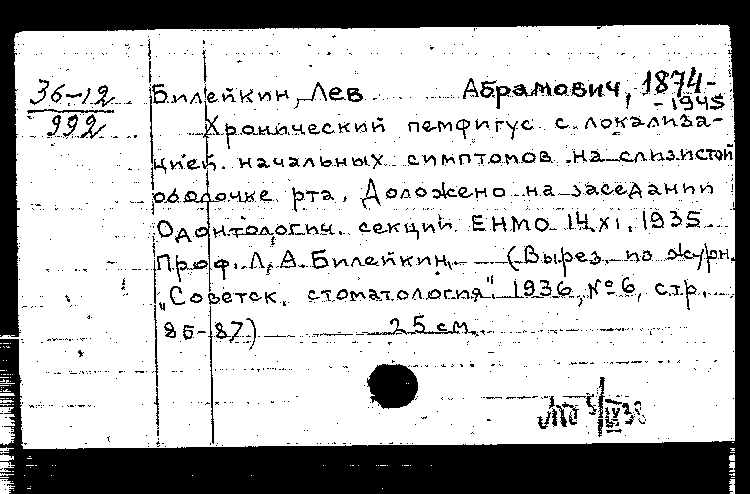 36-12
992
Билейкин, Лев Абрамович, 1874-
-1945
Хронический пемфигус с локализа-
цией начальных симптомов на слизистой
оболочке рта. Доложено на заседании
Одонтологич. секции ЕНМО 14.XI.1935
Проф. Л.А. Билейкин. — (Вырез. из журн.
"Советск. стоматология", 1936, №6, стр.
85-87) 25 см.
5/IX 38